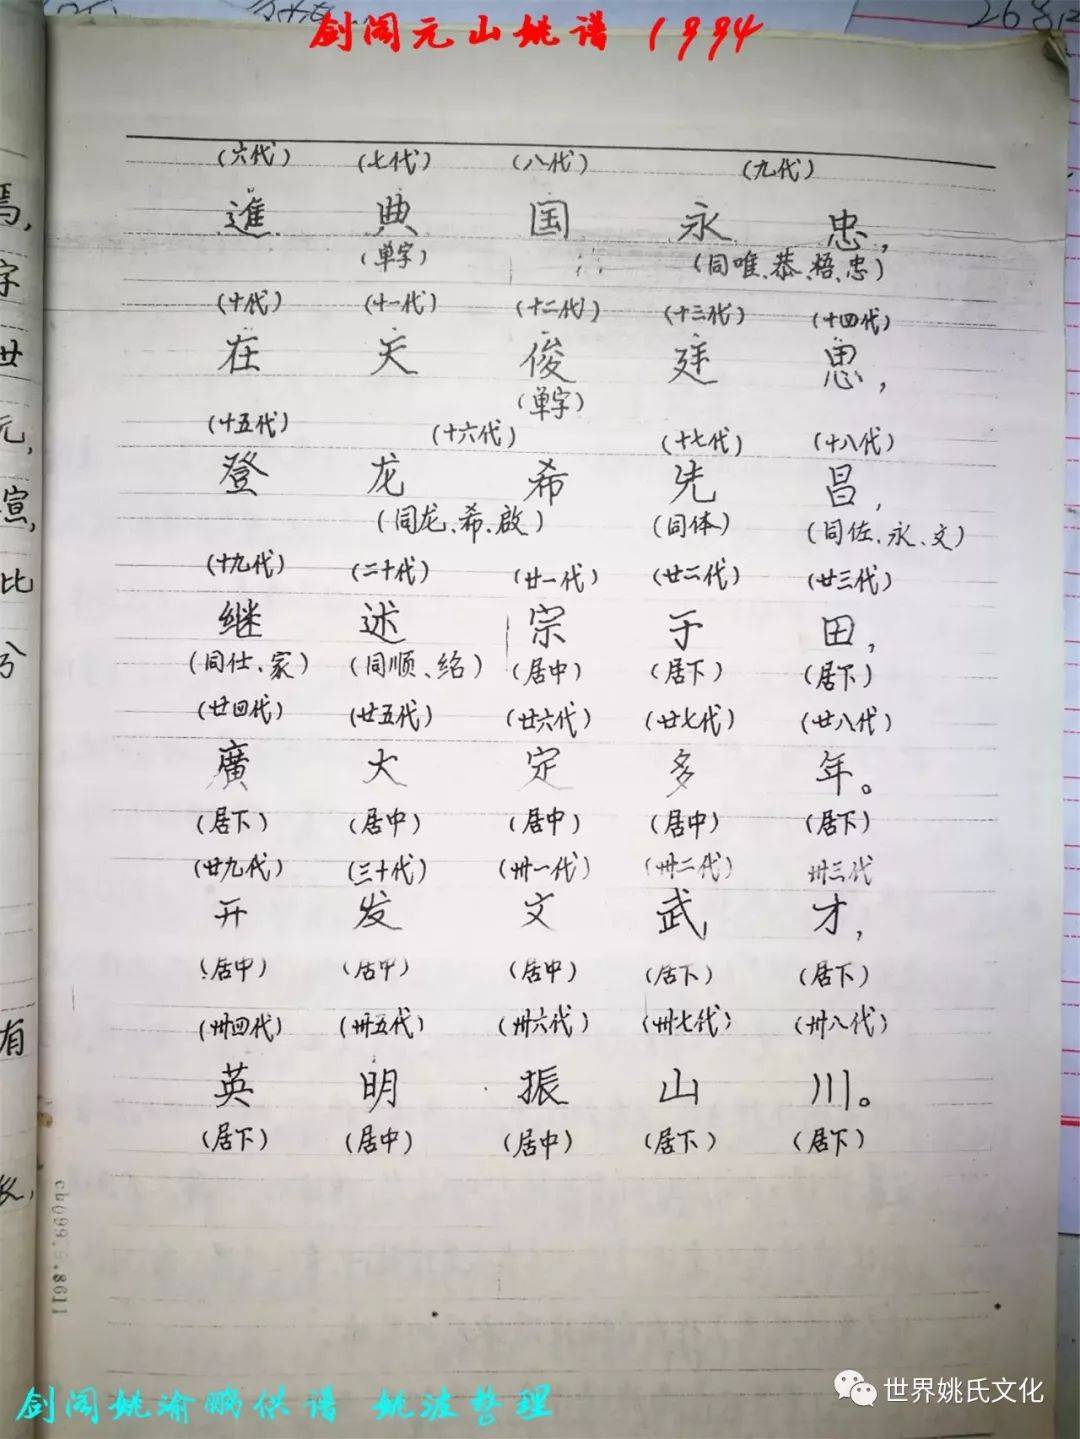 剑阁元山姚谱 1994
(六代) (七代) (八代) (九代)
進 典 国 永 忠，
(单字) (同唯、恭、梧、忠)
(十代) (十一代) (十二代) (十三代) (十四代)
在 天 俊 廷 思，
(单字)
(十五代) (十六代) (十七代) (十八代)
登 龙 希 先 昌，
(同龙、希、啟) (同体) (同佐、永、文)
(十九代) (二十代) (廿一代) (廿二代) (廿三代)
继 述 宗 于 田，
(同仕、家) (同顺、绍) (居中) (居下) (居下)
(廿四代) (廿五代) (廿六代) (廿七代) (廿八代)
廣 大 定 多 年。
(居下) (居中) (居中) (居中) (居下)
(廿九代) (三十代) (卅一代) (卅二代) 卅三代
开 发 文 武 才，
(居中) (居中) (居中) (居下) (居下)
(卅四代) (卅五代) (卅六代) (卅七代) (卅八代)
英 明 振 山 川。
(居下) (居中) (居中) (居下) (居下)
剑阁姚渝鹏供谱 姚波整理
世界姚氏文化